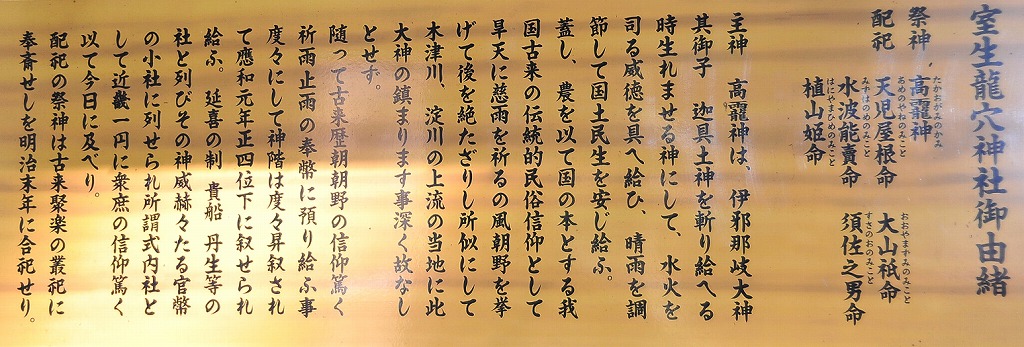 室生龍穴神社御由緒
祭神　高龗神
たかおかみのかみ
配祀　天児屋根命　大山祇命
あめのこやねのみこと　おおやますみのみこと
水波能賣命　須佐之男命
みずはのめのみこと　すさのおのみこと
植山姫命
はにやまひめのみこと
主神　高龗神は、伊邪那岐大神
其御子　迦具土神を斬り給へる
時生れませる神にして、水火を
司る威徳を具へ給ひ、晴雨を調
節して国土民生を安じ給ふ。
蓋し、農を以て国の本とする我
国古来の伝統的民俗信仰として
旱天に慈雨を祈るの風朝野を挙
げて後を絶たざりし所似にして
木津川、淀川の上流の当地に此
大神の鎮まります事深く故なし
とせず。
随って古来歴朝朝野の信仰篤く
祈雨止雨の奉幣に預り給ふ事
度々にして神階は度々昇叙され
て應和元年正四位下に叙せられ
給ふ。延喜の制　貴船　丹生等の
社と列びその神威赫々たる官幣
の小社に列せられ所謂式内社と
して近畿一円に衆庶の信仰篤く
以て今日に及べり。
配祀の祭神は古来聚楽の叢祀に
奉斎せしを明治末年に合祀せり。